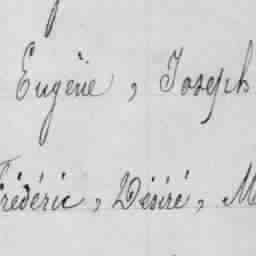 Eugène, Joseph
Frédéric, Désiré, M